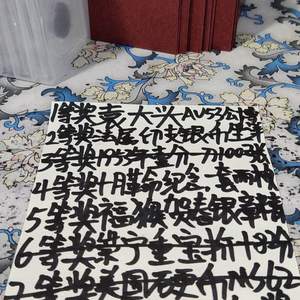 1等奖袁大头AU53公博
2等奖 银币生羊
3等奖1953年壹分一刀100张
4等奖十月革命纪念,套两枚
5等奖福猴贺喜银章精
6等奖崇宁重宝折十8
7等奖美国 MS62